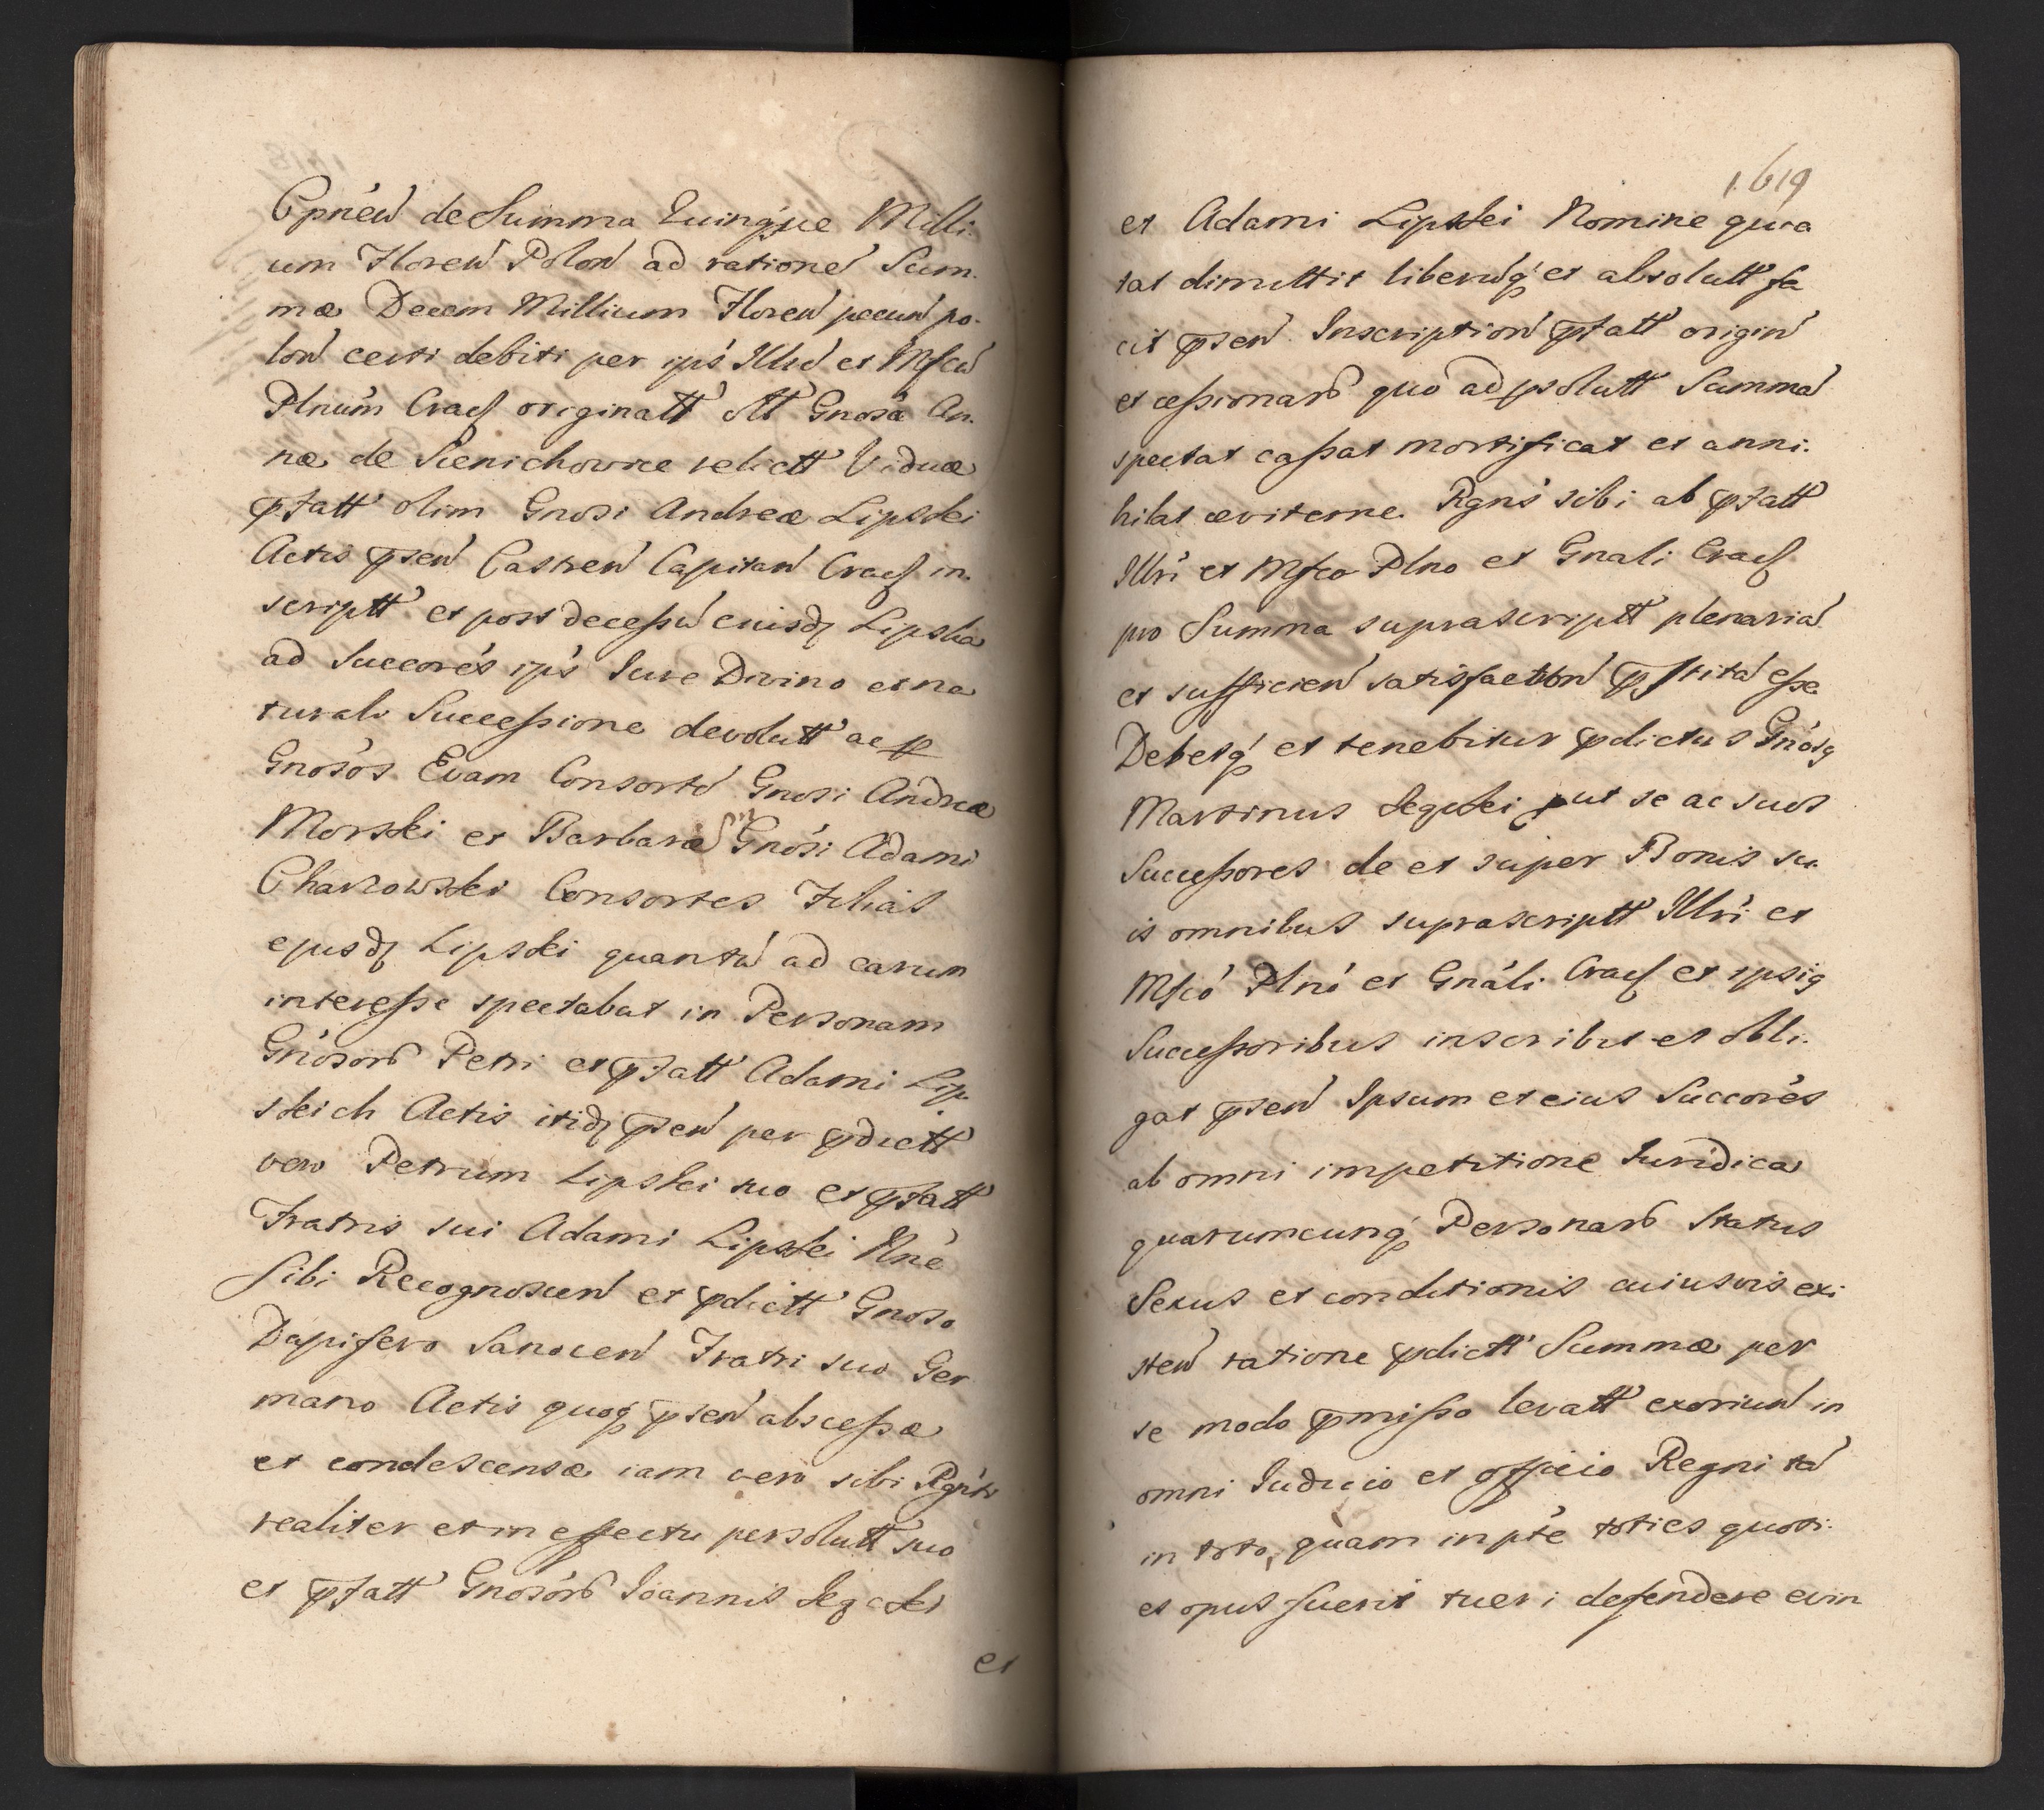 Cpnéw de Summa Quinque Milli.
um Floreń Poloń ad rationé Sum.
mæ Decem Millium Floreń pecuń po.
loń certi debiti per ips Illré et Mfcu
Plnúm Cracſ originatt olt Gnosa An.
næ de Sienichowice relictt Viduæ
pfatt olim Gnosi Andreæ Lipski
Actis pseń Castreń Capitań Cracſ in.
scriptt et post decessu eiusdꝫ Lipska
ad Succorés ips Jure Divino et na
turali Successione devolutt ac p
Gnosós Evam Consorté Gnosi Andreæ
Morski et Barbaræ Gnósi Adami
Charzowski Consortes Filias
ejusdꝫ Lipski quantú ad earum
interesse spectabat in Personam
Gnósorꝭ Petri et pfatt Adami Lip.
skich Actis itidꝫ pseń per pdictt
vero Petrum Lipski suo et pfatt
Fratris sui Adami Lipski Nné
sibi Recognosceń et pdictt Gnoso
Dapifero Sanoceń Fratri suo Ger
mano Actis quoq́ pseń abscessæ
et condescensæ iam vero sibi Rgńti
realiter et in effectu persolutt suo
et pfatt Gnosórꝭ Joannis
et
1619
et Adami Lipski Nomine quie
tat dimittit liberuq́ et absolutt fa
cit pseń Inscriptioń pfatt origiń
et cessionarꝭ quo ad psolutt Summá
spectat cassat mortificat et anni.
hilat æviterne. Rgns sibi ab pfatt
Illri et Mfco Plno et Gnali Cracſ
pro Summa suprascriptt plenariá
et sufficień satisfactioń pstitá esse
Debetq́ et tenebitur pdictus Gnósꝯ
Martinus put se ac suos
Successores de et super Bonis su
is omnibus suprascriptt Illri et
Mfcó Plnó et Gnáli Cracſ et ipsiꝯ
Successoribus inscribit et obli.
gat pseń Ipsum et eius Succorés
ab omni impetitione Juridica
quarumcunq́ Personarꝭ Status
Sexus et conditionis cuiusvis exi
steń ratione pdictt Summæ per
se modo pmisso levatt exoriuń in
omni Judicio et officio Regni tá
in toto, quam in pte toties quoti.
es opus fuerit tueri defendere evin